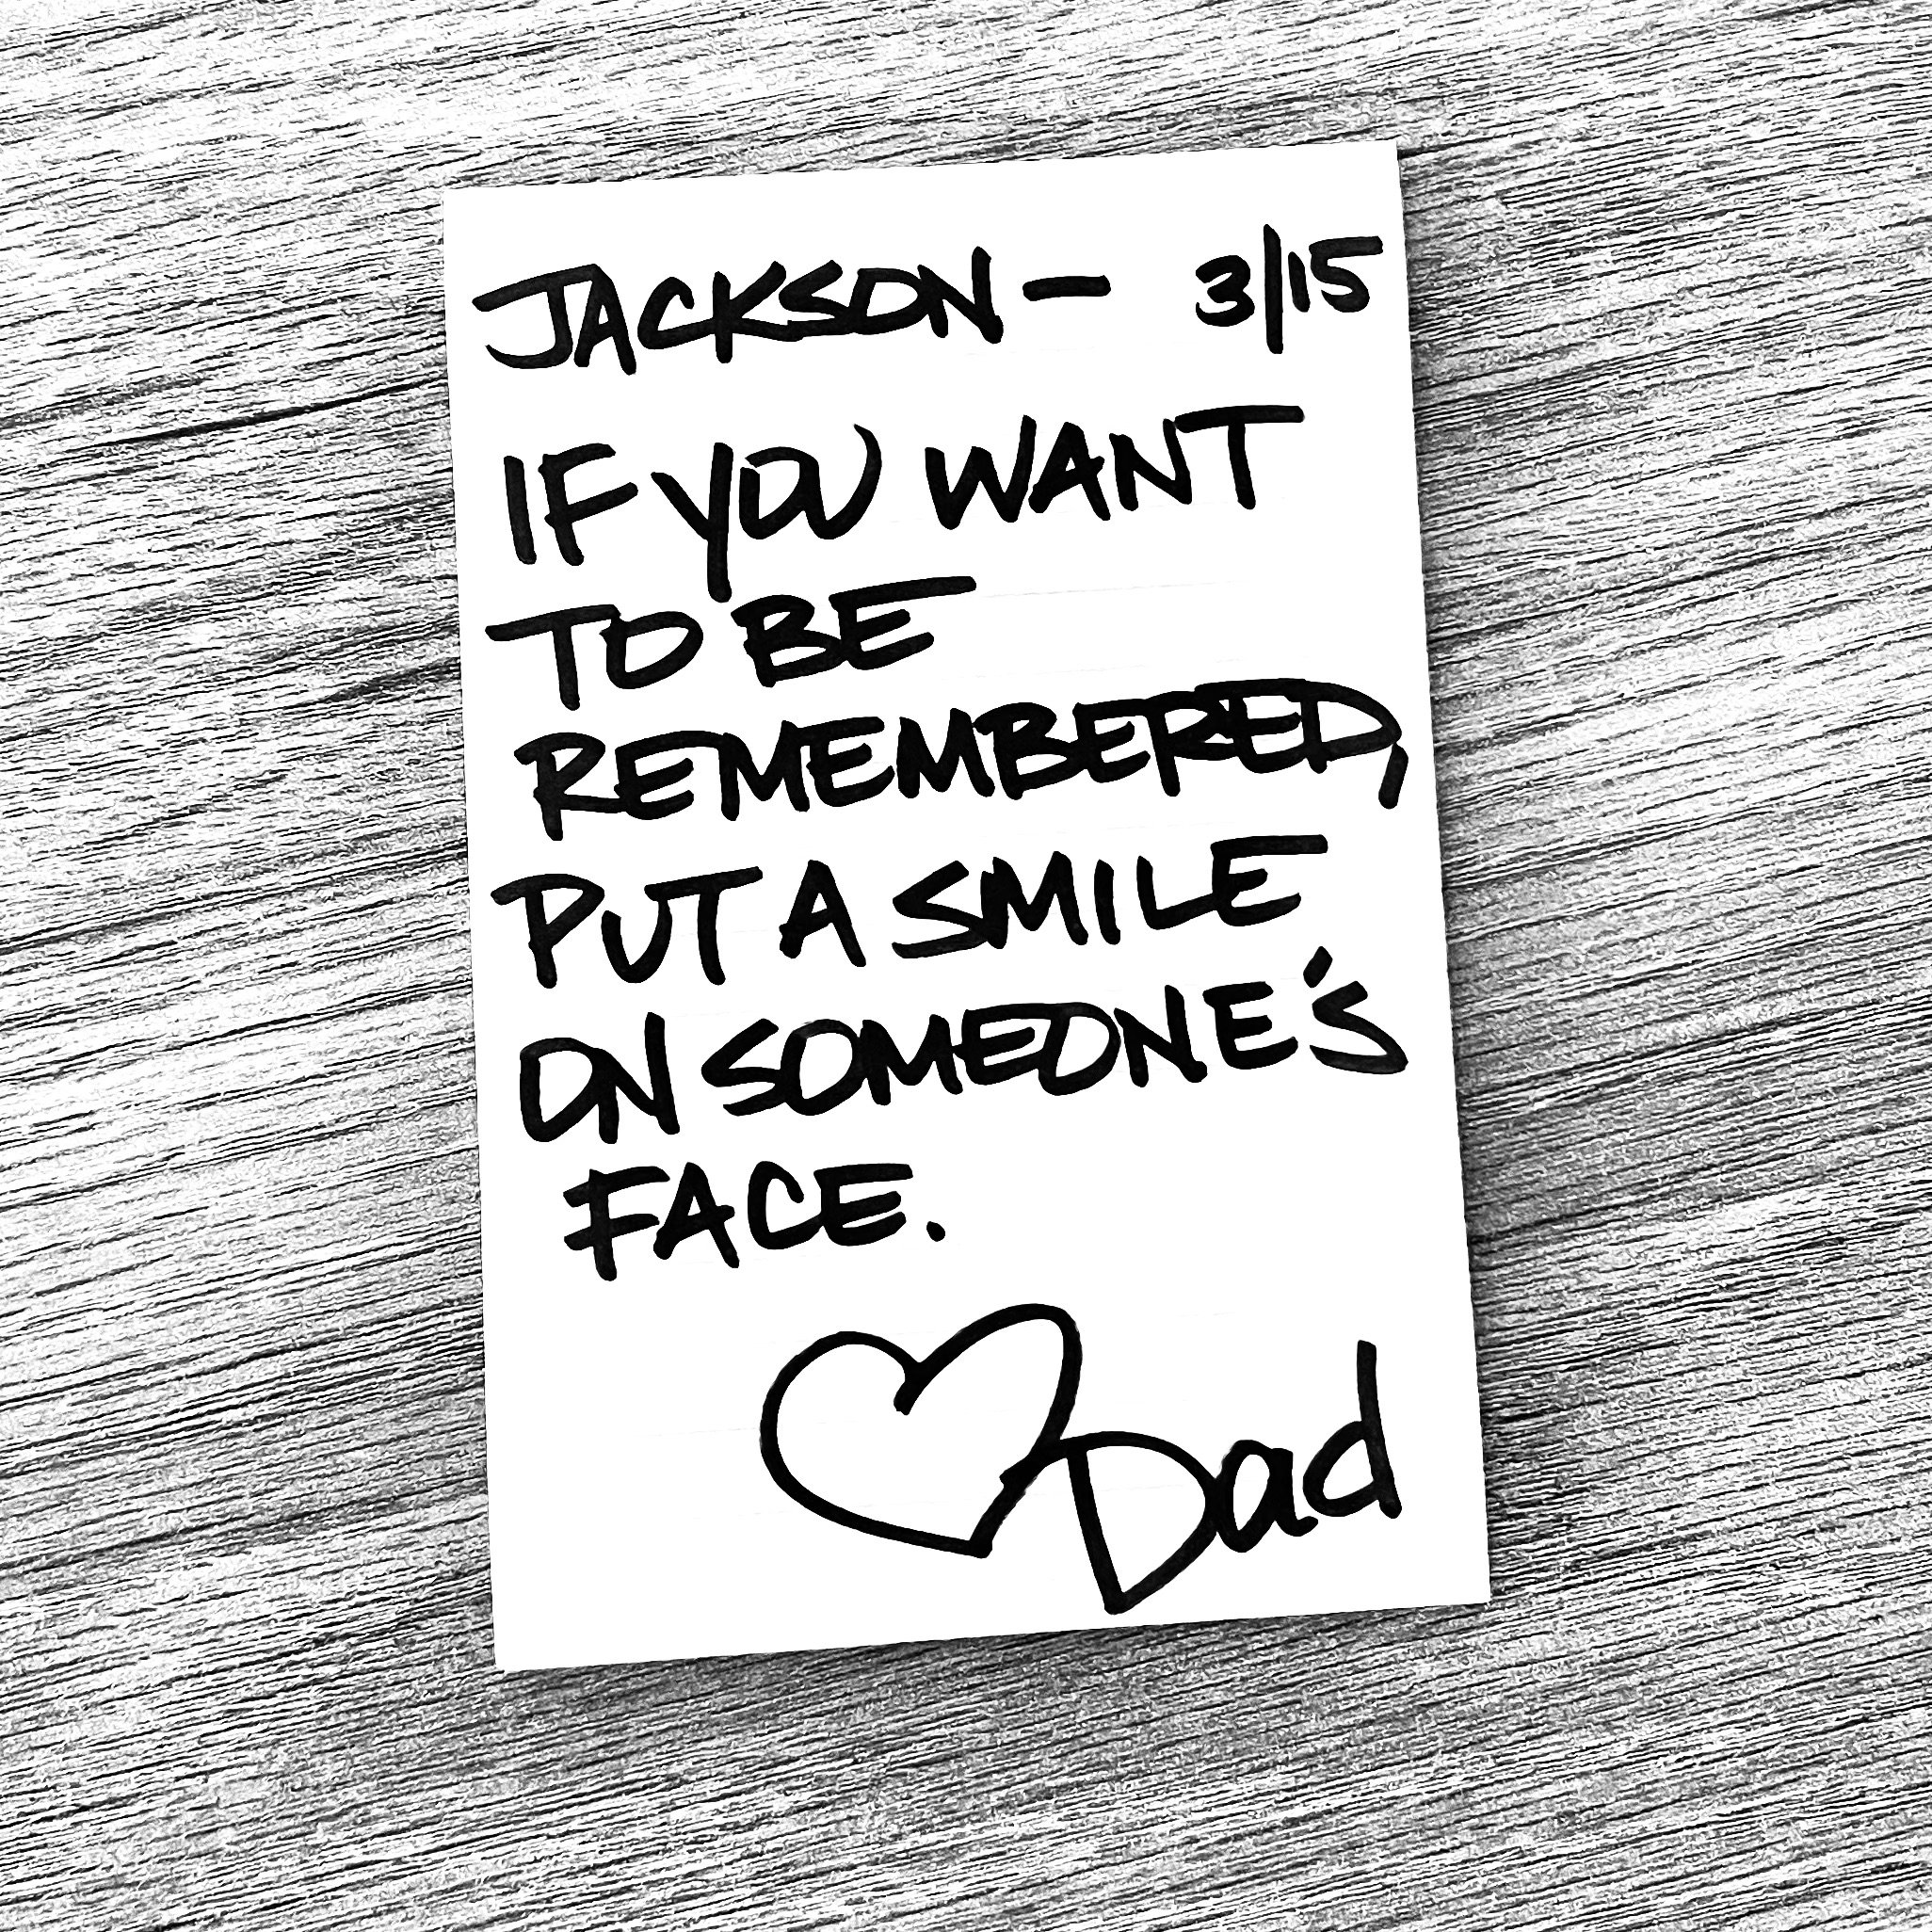 JACKSON — 3/15
IF YOU WANT
TO BE
REMEMBERED,
PUT A SMILE
ON SOMEONE'S
FACE.
♡ Dad